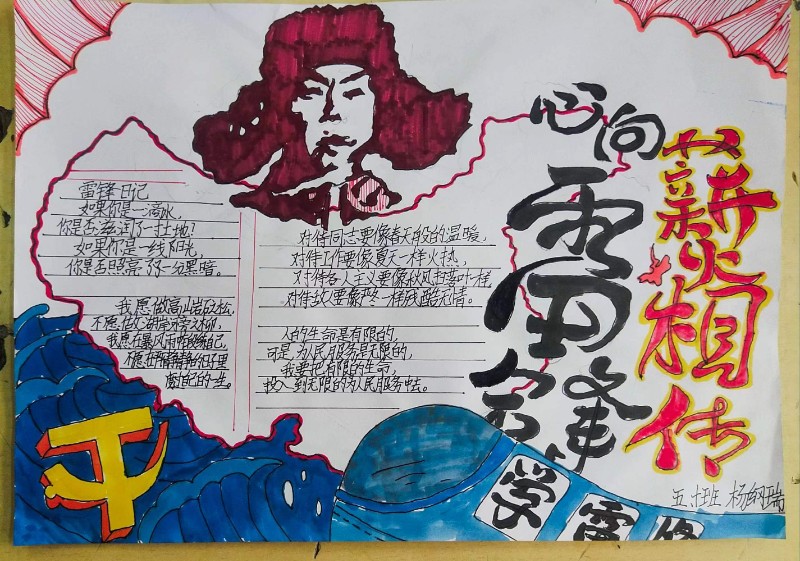 心向
雷锋
薪火相传
雷锋日记
如果你是一滴水,
你是否滋润了一寸土地?
如果你是一线阳光,
你是否照亮了一分黑暗。
我愿做高山岩石之松,
不愿做湖岸旁之柳,
我愿在暴风雨中
对待同志要像春天般的温暖,
对待工作要像夏天一样火热,
对待个人主义要像秋风扫落叶一样,
对待敌人要像严冬一样残酷无情。
人的生命是有限的,
可是为人民服务是无限的,
我要把有限的生命,
投入到无限的为人民服务中去。
学雷
五、班 杨纲瑞